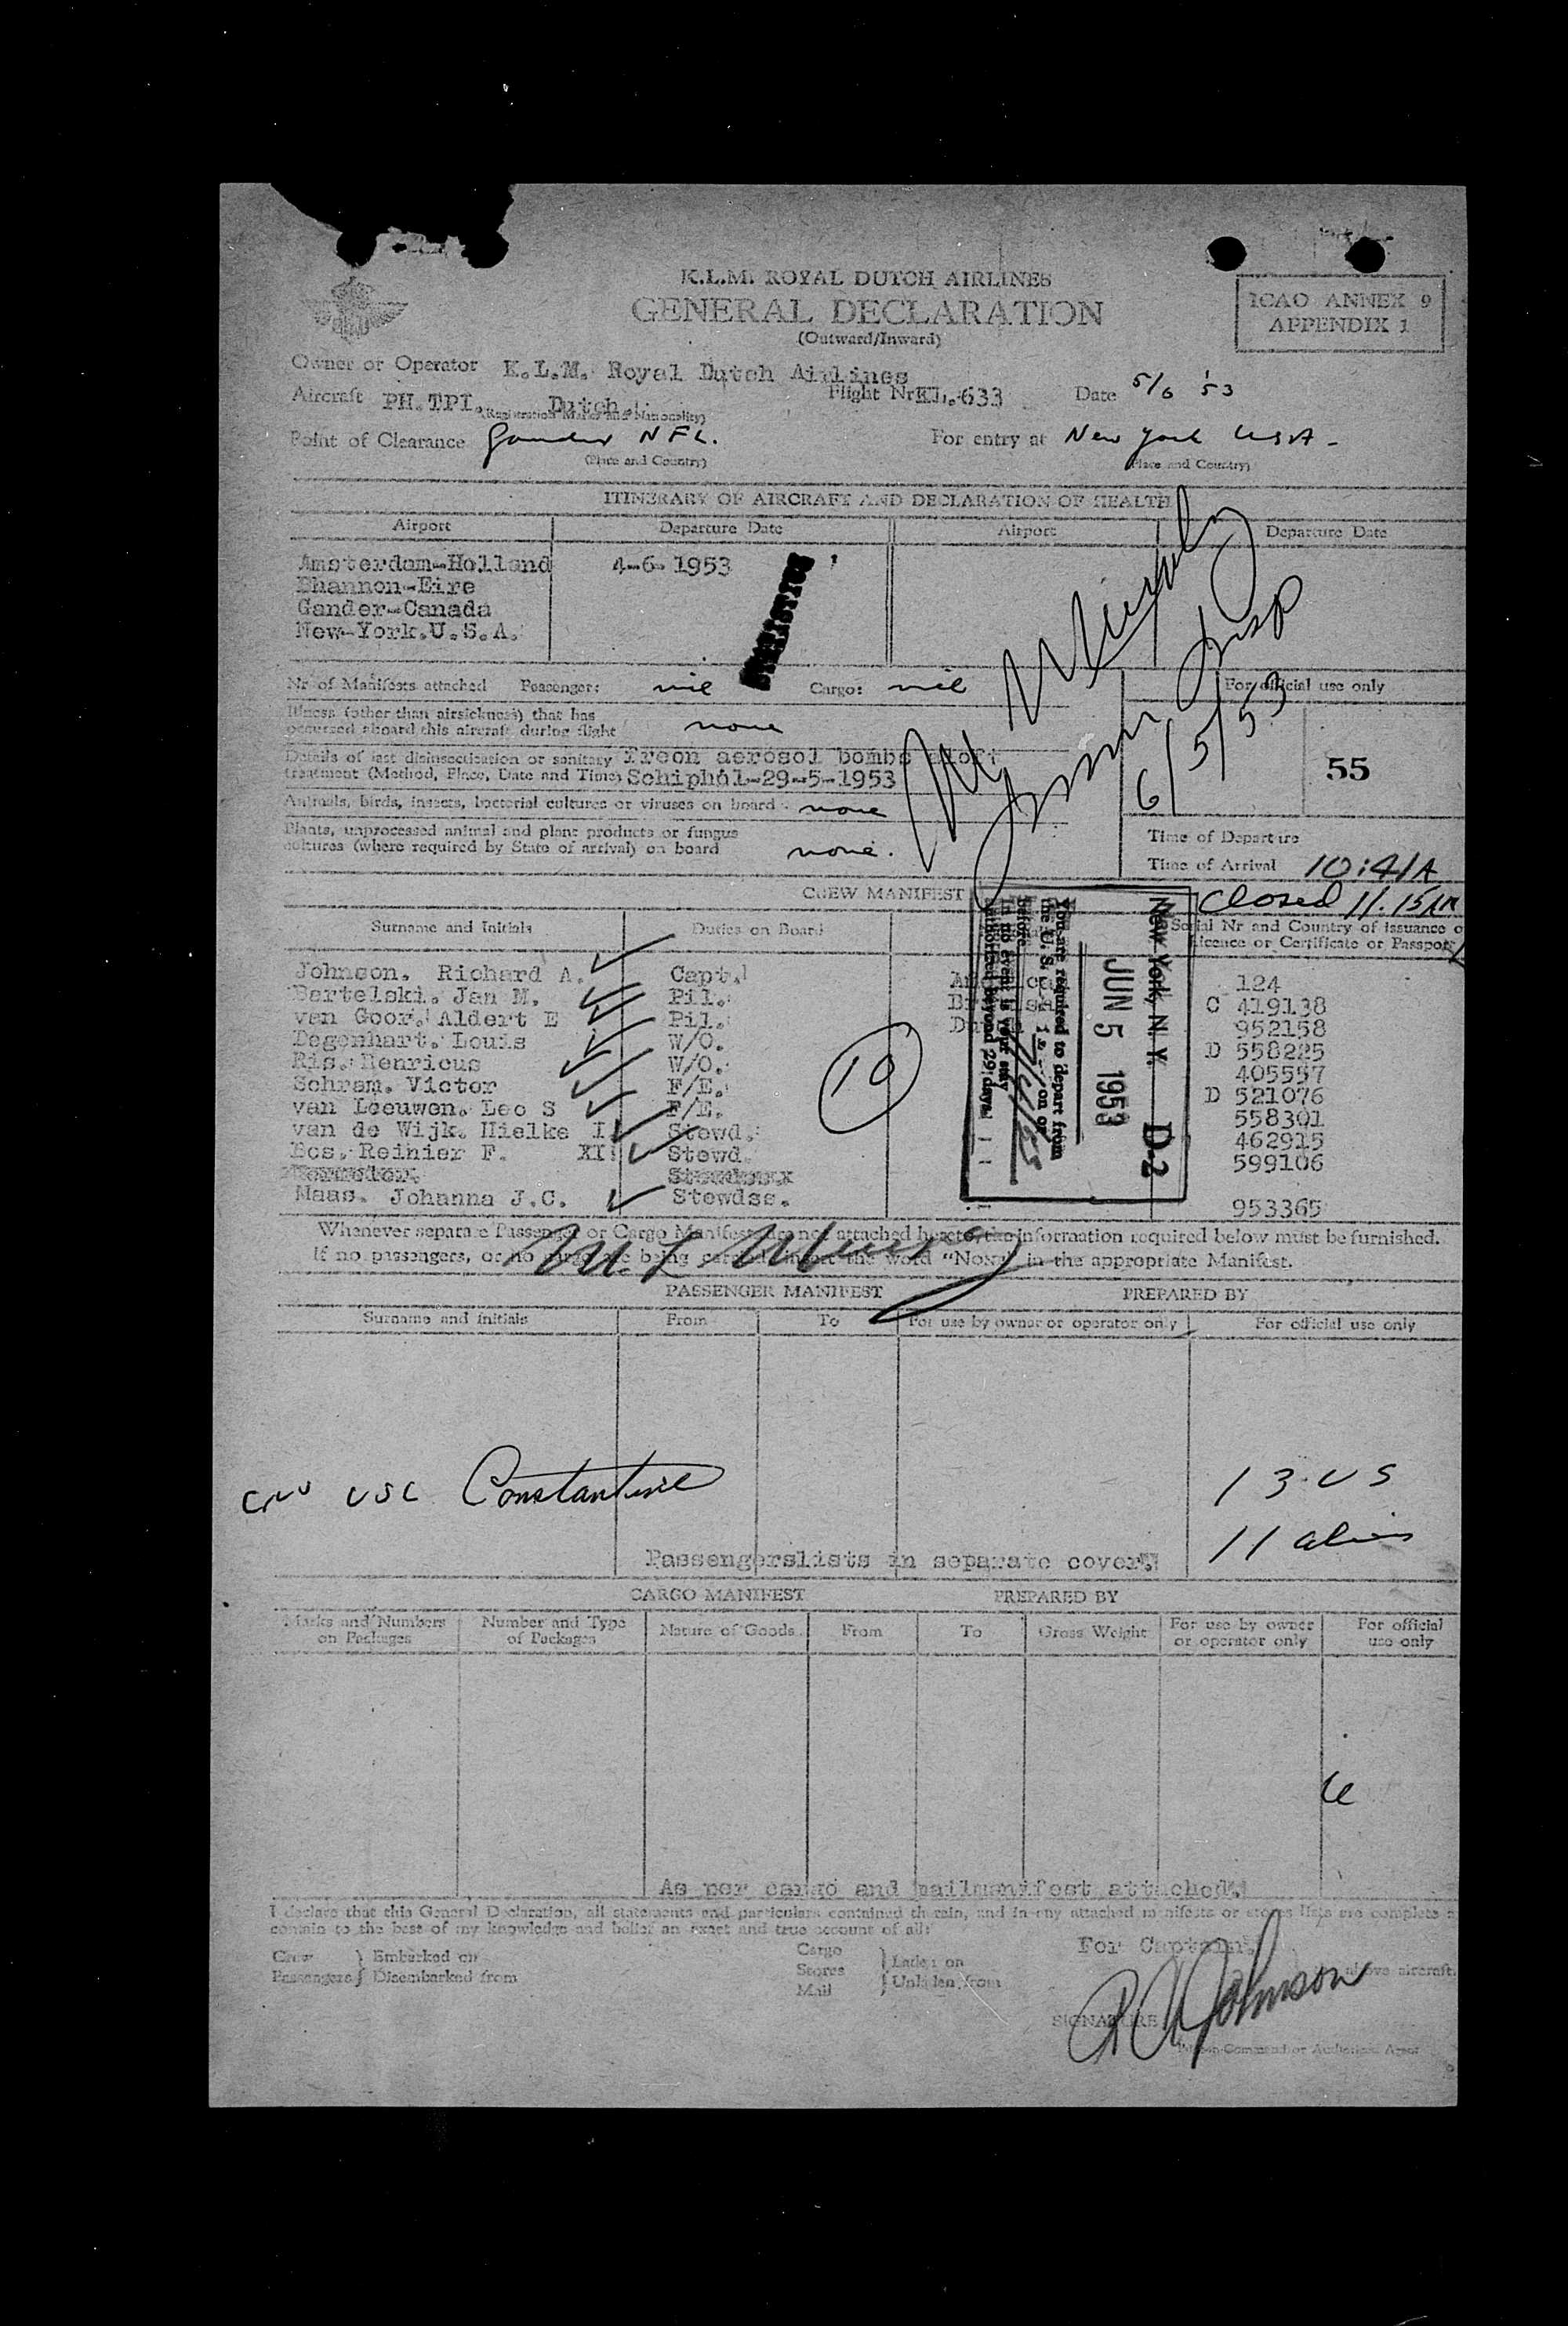 K.L.M. ROYAL DUTCH AIRLINES
GENERAL DECLARATION
(Outward/Inward)
ICAO ANNEX 9
APPENDIX 1
Owner or Operator K.L.M. Royal Dutch Airlines
Aircraft PH.TPI. Dutch. Flight Nr KL.633 Date 5/6 '53
(Registration Marks and Nationality)
Point of Clearance Gander NFL. For entry at New York USA-
(Place and Country) (Place and Country)
ITINERARY OF AIRCRAFT AND DECLARATION OF HEALTH
Airport Departure Date Airport Departure Date
Amsterdam-Holland 4-6-1953
Shannon-Eire
Gander-Canada
New-York.U.S.A.
Nr of Manifests attached Passenger: nil Cargo: nil For official use only
Illness (other than airsickness) that has
occurred aboard this aircraft during flight none
Details of last disinsectisation or sanitary Freon aerosol bombs
treatment (Method, Place, Date and Time) Schiphol-29-5-1953
55
Animals, birds, insects, bacterial cultures or viruses on board none
Plants, unprocessed animal and plant products or fungus
cultures (where required by State of arrival) on board none.
Murphy
Insp
6/5/53
Time of Departure
Time of Arrival 10:41A
Closed 11.15AM
CREW MANIFEST
Surname and Initials Duties on Board Serial Nr and Country of issuance of
Licence or Certificate or Passport
Johnson. Richard A. Capt. 124
Bertelski. Jan M. Pil. C 419138
van Goor. Aldert E Pil. 952158
Degenhart. Louis W/O. D 558225
Ris. Henricus W/O. 405557
Schram. Victor F/E. D 521076
van Leeuwen. Leo S F/E. 558301
van de Wijk. Hielke I. Stewd. 462915
Bos. Reinier F. XI. Stewd. 599106
Maas. Johanna J.C. Stewdss. 953365
10
New York, N. Y. D-2
JUN 5 1953
You are required to depart from
the U. S. on or
before
In no event is your stay
authorized beyond 29 days.
Whenever separate Passenger or Cargo Manifests are not attached hereto, the information required below must be furnished.
If no passengers, or no being carried insert the word "None" in the appropriate Manifest.
PASSENGER MANIFEST PREPARED BY
Surname and Initials From To For use by owner or operator only For official use only
USC Constantine
13 US
11
Passengerslists in separate cover.
CARGO MANIFEST PREPARED BY
Marks and Numbers on Packages Number and Type of Packages Nature of Goods From To Gross Weight For use by owner or operator only For official use only
As per cargo and mailmanifest attached.
I declare that this General Declaration, all statements and particulars contained therein, and in any attached manifests or stores lists are complete
contain to the best of my knowledge and belief an exact and true account of all:
Crew Passengers } Embarked on Disembarked from
Cargo Stores Mail } Laden on Unladen from
For Captain.
above aircraft.
SIGNATURE R A Johnson